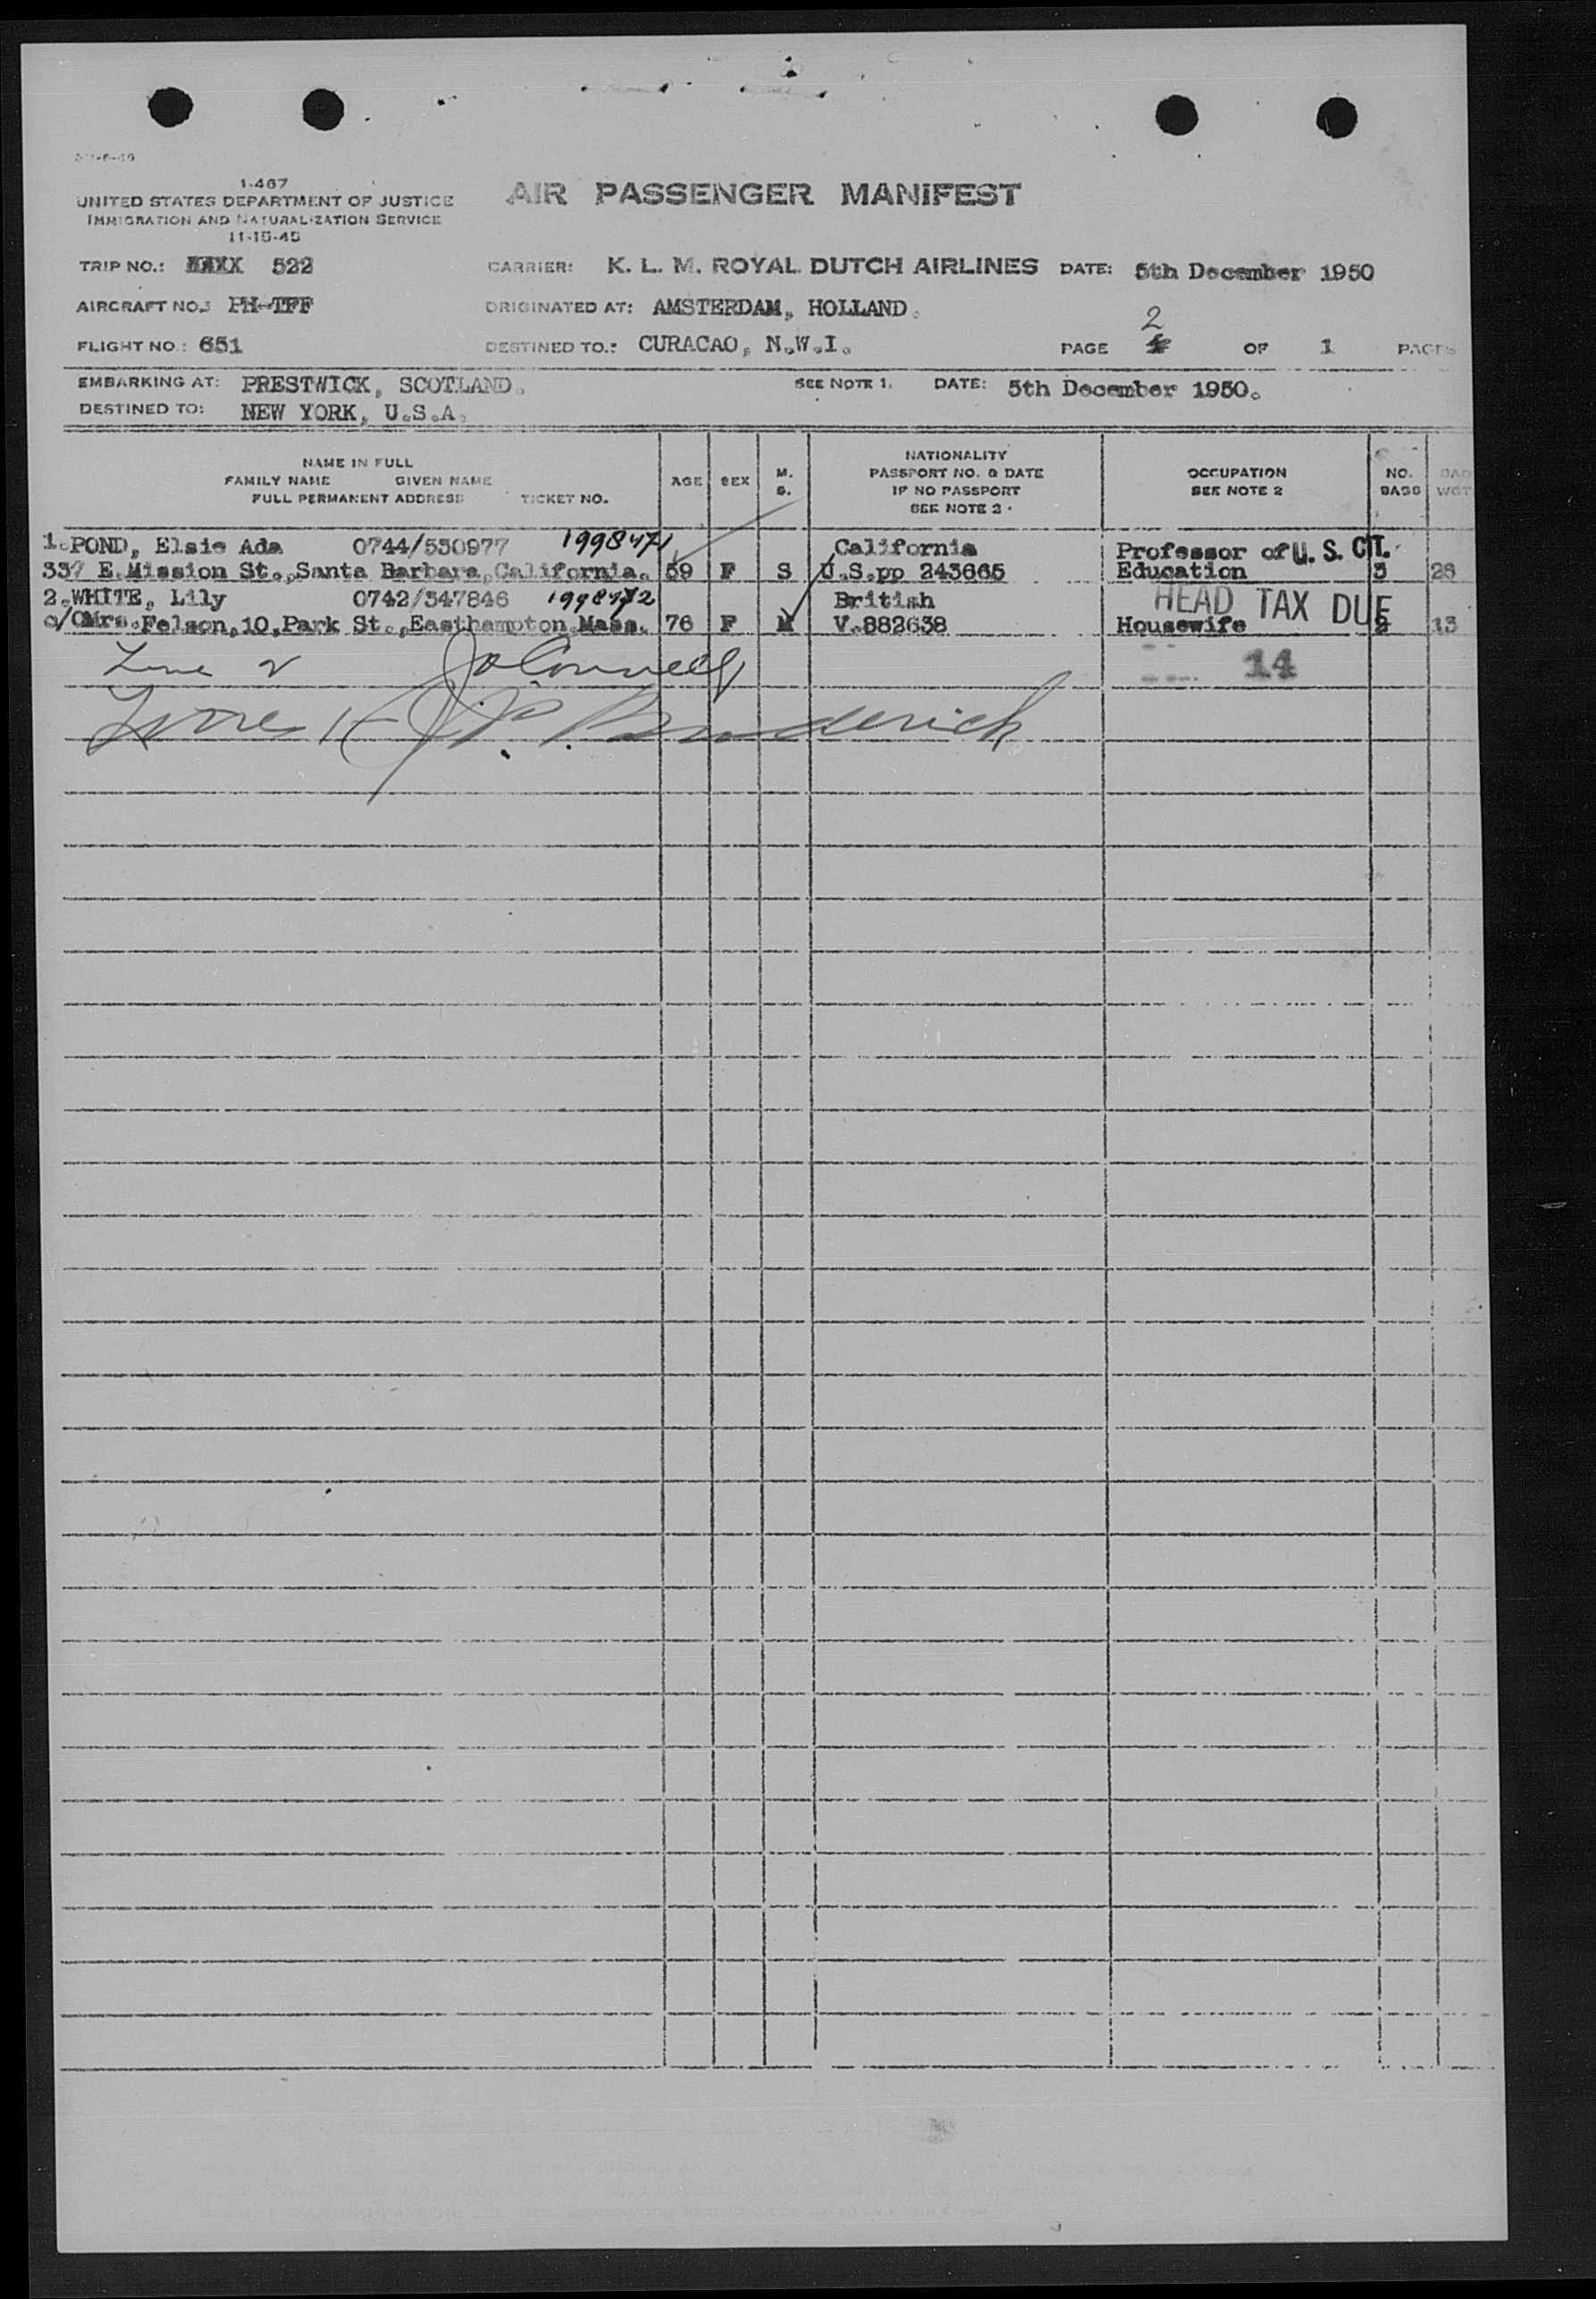 1-467
UNITED STATES DEPARTMENT OF JUSTICE
IMMIGRATION AND NATURALIZATION SERVICE
11-15-45
AIR PASSENGER MANIFEST
TRIP NO.: 522 CARRIER: K. L. M. ROYAL DUTCH AIRLINES DATE: 5th December 1950
AIRCRAFT NO.: PH-TFF ORIGINATED AT: AMSTERDAM, HOLLAND.
FLIGHT NO.: 651 DESTINED TO.: CURACAO, N.W.I. PAGE 2 OF 1 PAGES
EMBARKING AT: PRESTWICK, SCOTLAND. SEE NOTE 1. DATE: 5th December 1950.
DESTINED TO: NEW YORK, U.S.A.
NAME IN FULL
FAMILY NAME GIVEN NAME
FULL PERMANENT ADDRESS TICKET NO.
AGE SEX M. S.
NATIONALITY
PASSPORT NO. & DATE
IF NO PASSPORT
SEE NOTE 3
OCCUPATION
SEE NOTE 2
NO. BAGS
BAG WGT
1.POND, Elsie Ada 0744/530977 1998471 California Professor of U. S. CIT.
337 E.Mission St.,Santa Barbara,California. 59 F S U.S.pp 243665 Education 3 28
2.WHITE, Lily 0742/347846 1998472 British HEAD TAX DUE
c/OMrs.Felson,10,Park St.,Easthampton,Mass. 76 F M V.882638 Housewife 13
Line 2 JO'Connell 14
Lines 1 J.P. Broderick